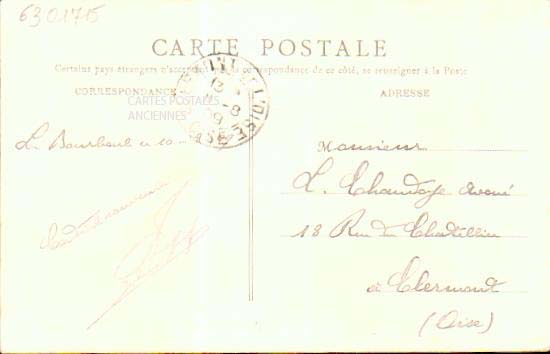 6301715
CARTE POSTALE
Certains pays étrangers n'acceptent pas de correspondance de ce côté, se renseigner à la Poste
CORRESPONDANCE
ADRESSE
CARTES POSTALES
ANCIENNES
La Bourboule le 10
Monsieur
L. Chandoye Avoué
18 Rue de Chatillon
à Clermont
(Oise)